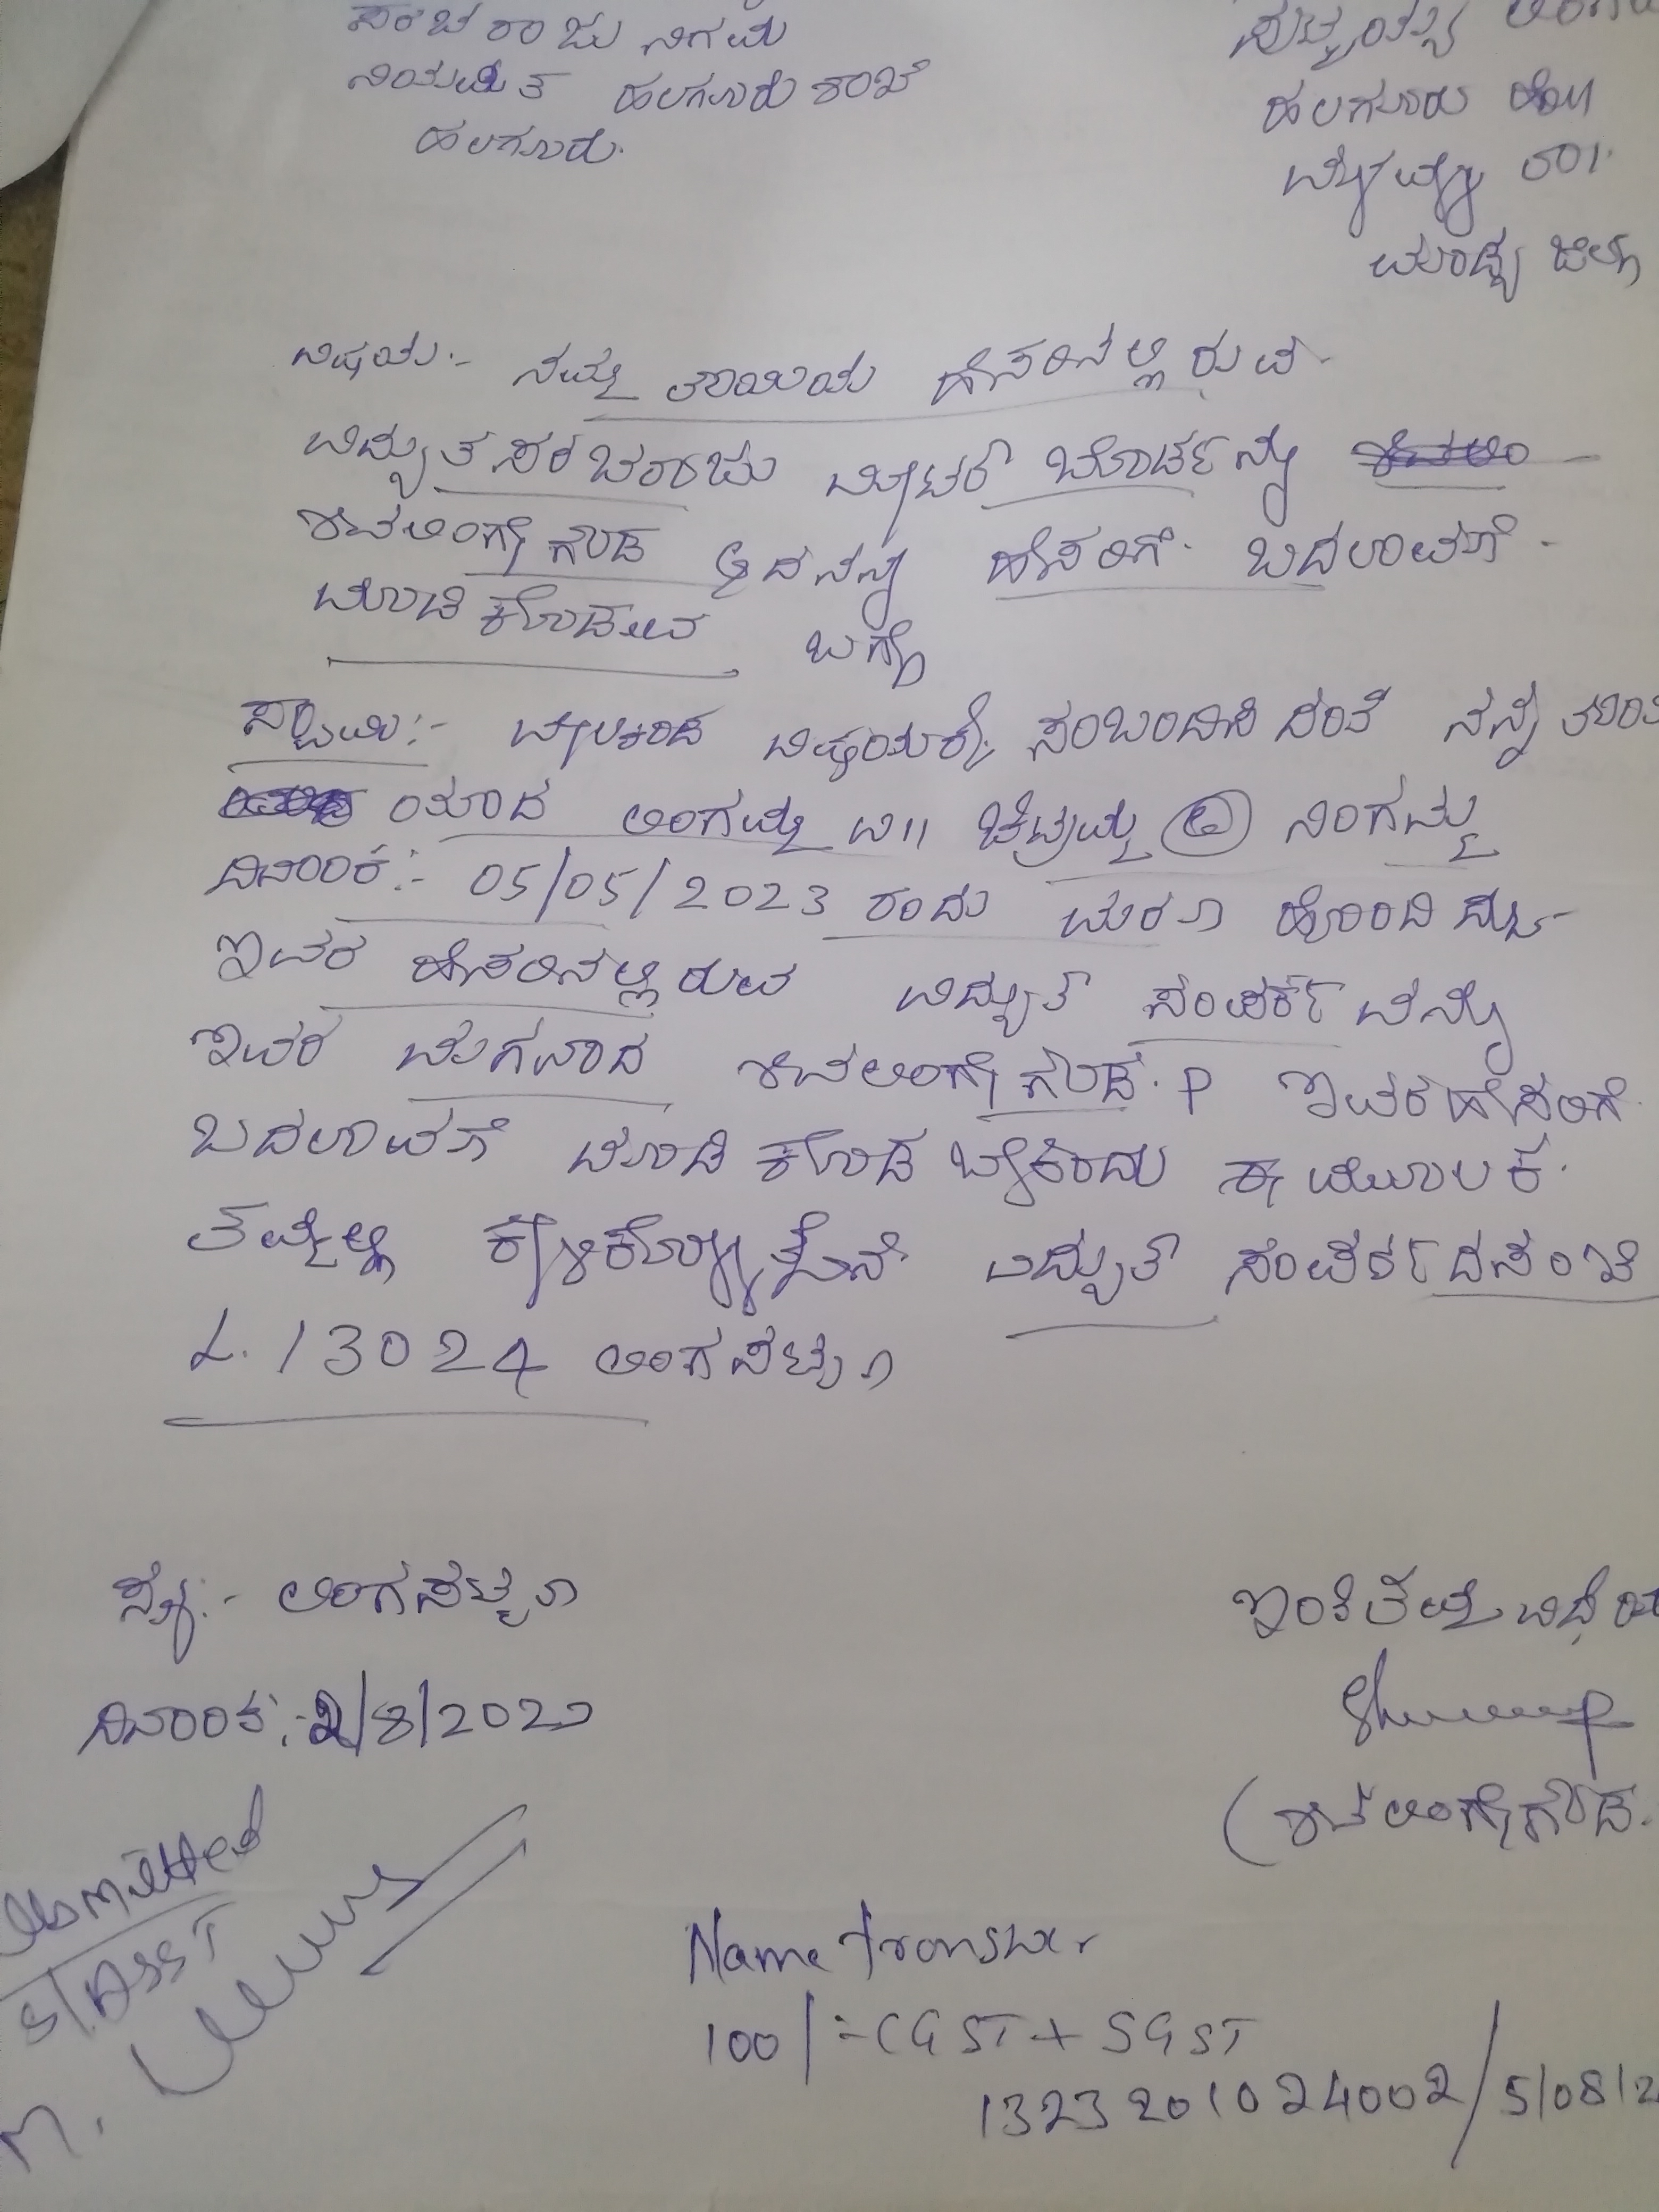 ಸರಬರಾಜು ನಿಗಮ
ನಿಯಮಿತ ಹಲಗೂರು ಶಾಖೆ
ಹಲಗೂರು.
ಹಲಗೂರು ಹೋ||
ಮಂಡ್ಯ ಜಿಲ್ಲೆ
ವಿಷಯ:- ನಮ್ಮ ತಾಯಿಯ ಹೆಸರಿನಲ್ಲಿರುವ
ವಿದ್ಯುತ ಸರಬರಾಜು ಮೀಟರ್ ಬೋರ್ಡನ್ನು
ಶಿವಲಿಂಗೇಗೌಡ ಆದ ನನ್ನ ಹೆಸರಿಗೆ ಬದಲಾವಣೆ
ಮಾಡಿಕೊಡುವ ಬಗ್ಗೆ
ಸ್ವಾಮಿ:- ಮೇಲ್ಕಂಡ ವಿಷಯಕ್ಕೆ ಸಂಬಂದಿಸಿದಂತೆ ನನ್ನ
ಯಾದ ಲಿಂಗಮ್ಮ ವಿ|| ಚಿಕ್ಕಮ್ಮ @ ನಿಂಗಮ್ಮ
ದಿನಾಂಕ:- 05/05/2023 ರಂದು ಮರಣ ಹೊಂದಿದ್ದು
ಇವರ ಹೆಸರಿನಲ್ಲಿರುವ ವಿದ್ಯುತ್ ಸಂಪರ್ಕವನ್ನು
ಇವರ ಮಗನಾದ ಶಿವಲಿಂಗೇಗೌಡ. P ಇವರ ಹೆಸರಿಗೆ
ಬದಲಾವಣೆ ಮಾಡಿಕೊಡಬೇಕೆಂದು ಈ ಮೂಲಕ
ತಮ್ಮಲ್ಲಿ ಕೇಳಿಕೊಳ್ಳುತ್ತೇನೆ ವಿದ್ಯುತ್ ಸಂಪರ್ಕದ ಸಂಖ್ಯೆ
L. 13024 ಲಿಂಗಪಟ್ಣ
ಸ್ಥಳ:- ಲಿಂಗಪಟ್ಣ
ದಿನಾಂಕ:- 2/8/2023
ಇಂತಿ ತಮ್ಮ ವಿಧೇಯ
(ಶಿವಲಿಂಗೇಗೌಡ.
S/ASST
Name transfer
100/= CGST + SGST
1323201024002/5/08/2